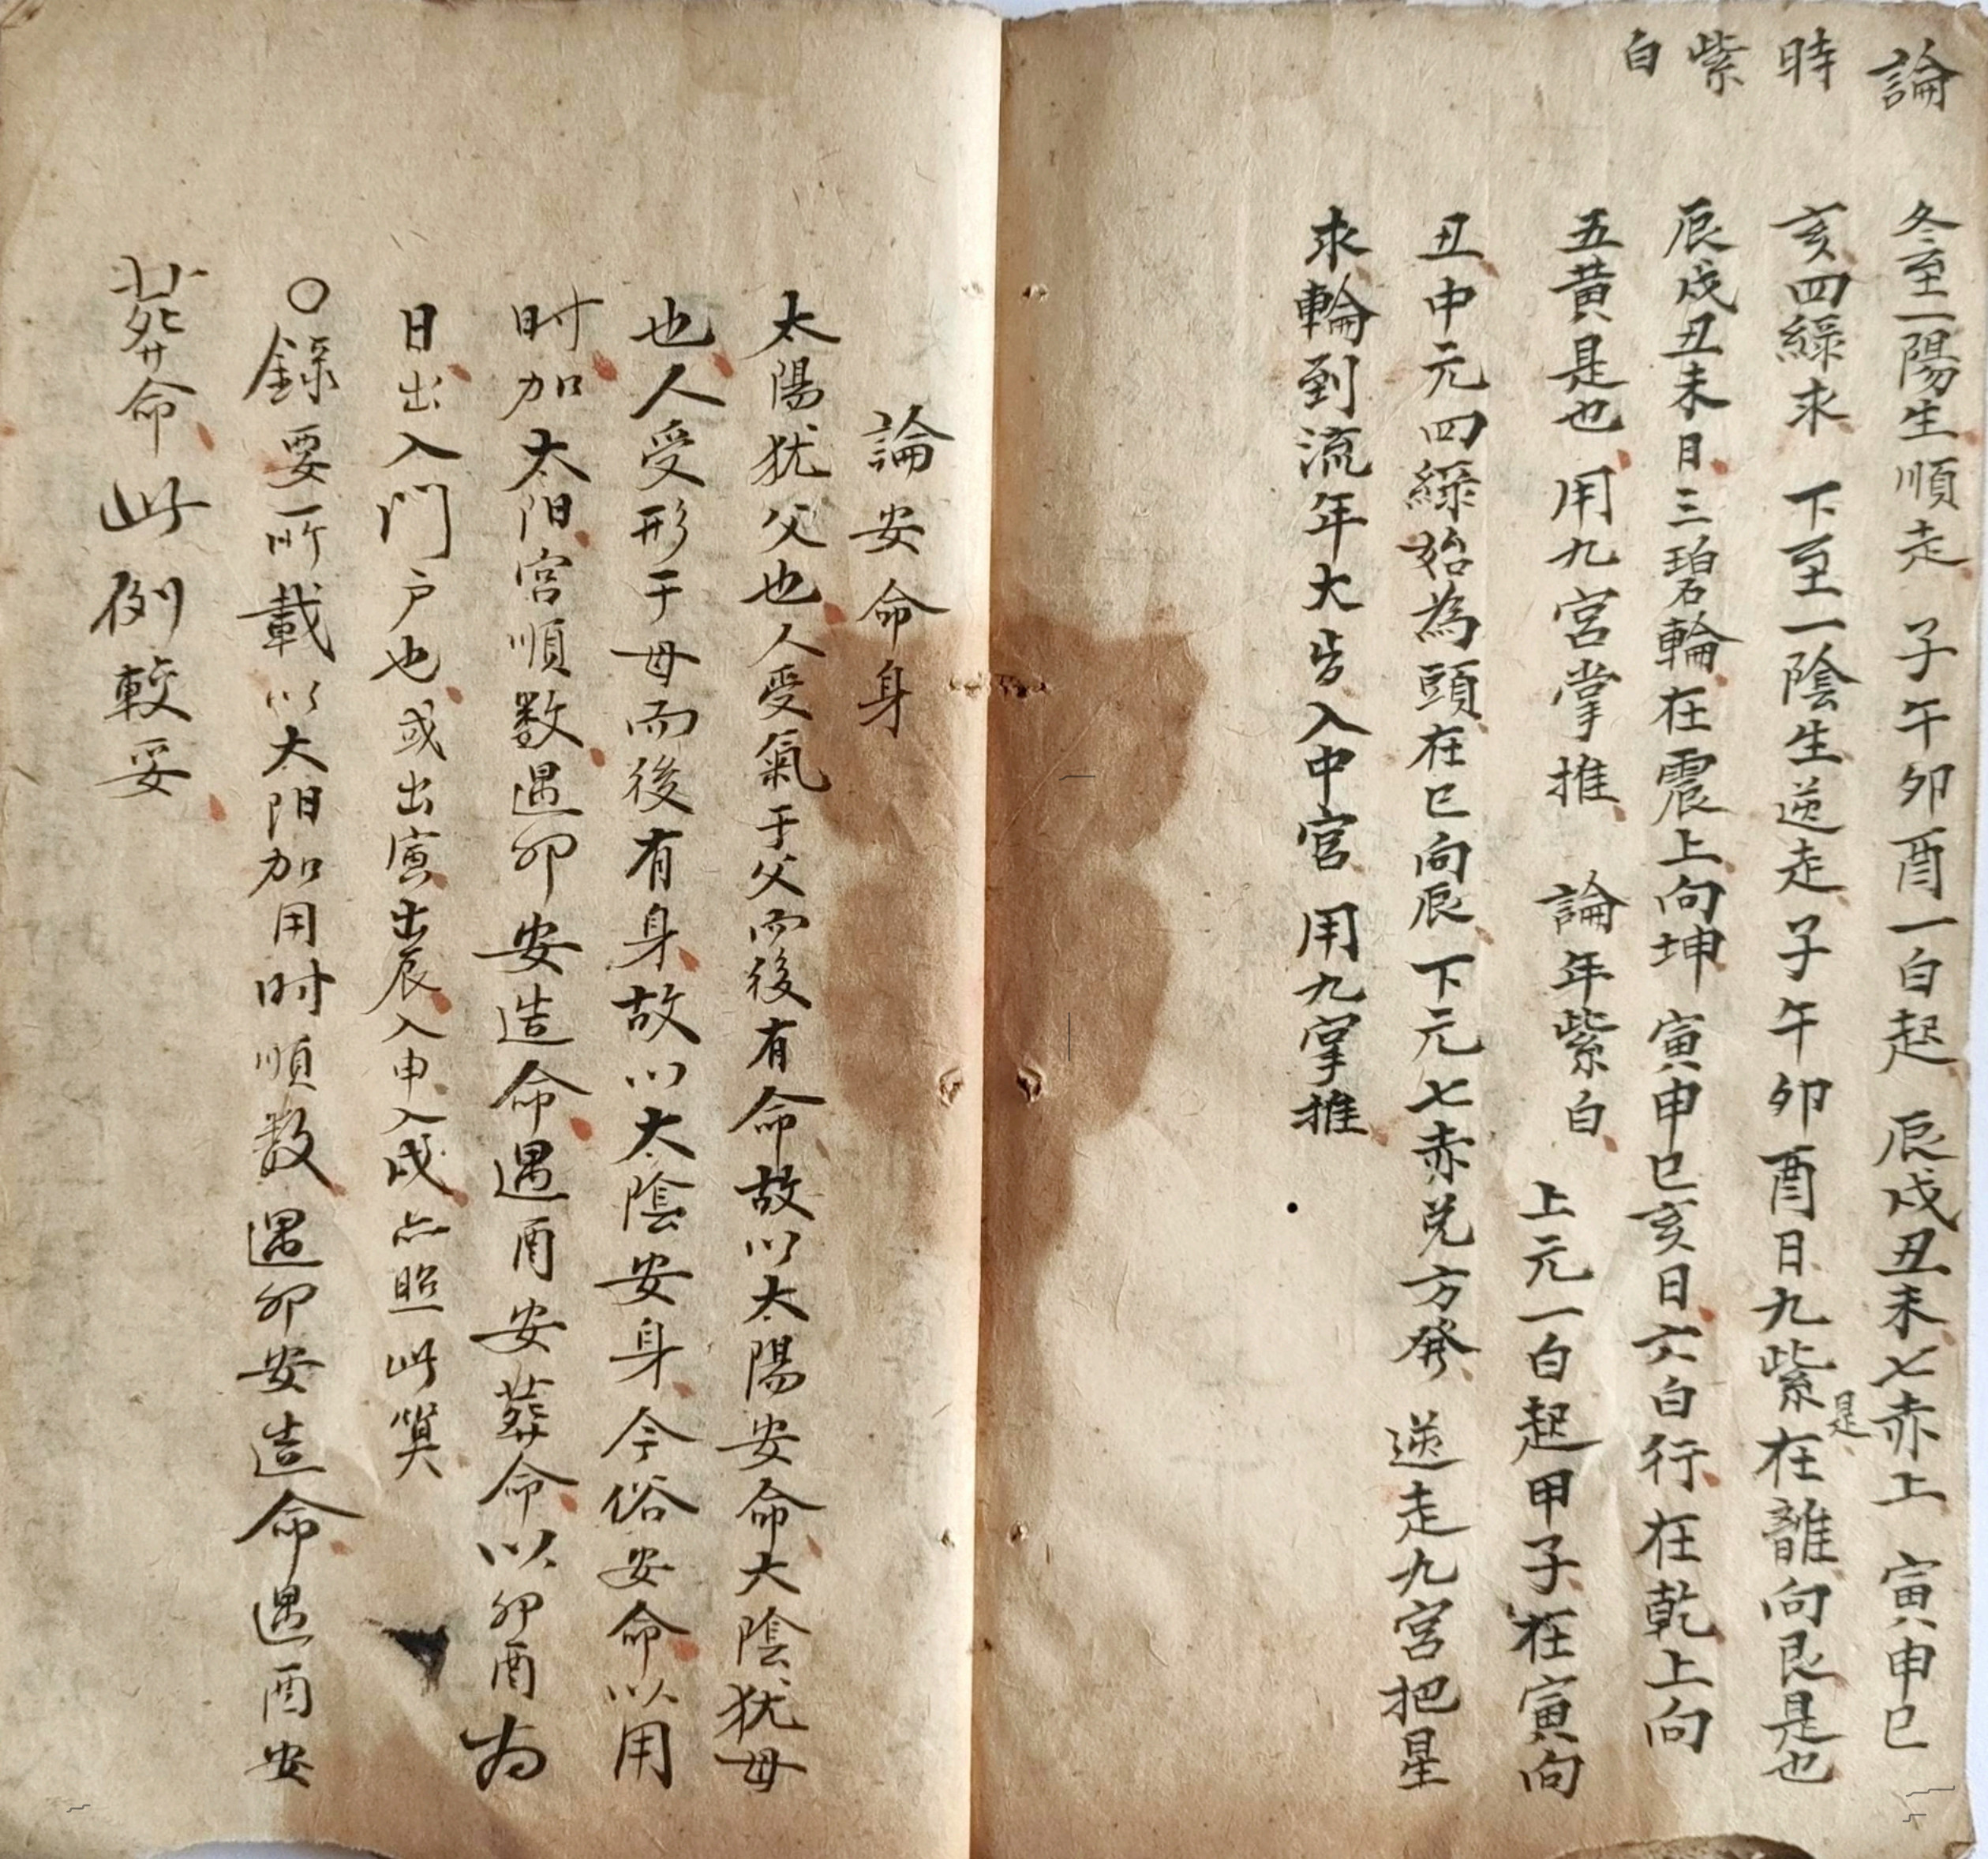 論時紫白
冬至一陽生順走 子午卯酉一白起 辰戌丑未七赤上 寅申巳
亥四綠求 下至一陰生逆走 子午卯酉日九紫是在離向艮是也
辰戌丑未日三碧輪在震上向坤 寅申巳亥日六白行在乾上向
五黃是也 用九宮掌推 論年紫白 上元一白起甲子在寅向
丑中元四綠始為頭在巳向辰 下元七赤兌方發 逆走九宮把星
求輪到流年大皆入中宮 用九掌推
論安命身
太陽犹父也人受氣于父而後有命故以太陽安命大陰犹母
也人受形于母而後有身故以太陰安身今俗安命以用
时加太阳宮順数遇卯安造命遇酉安葬命以卯酉为
日出入門户也或出寅出辰入申入戌亦照此算
○錄要所載以太阳加用时順数遇卯安造命遇酉安
葬命此例較妥